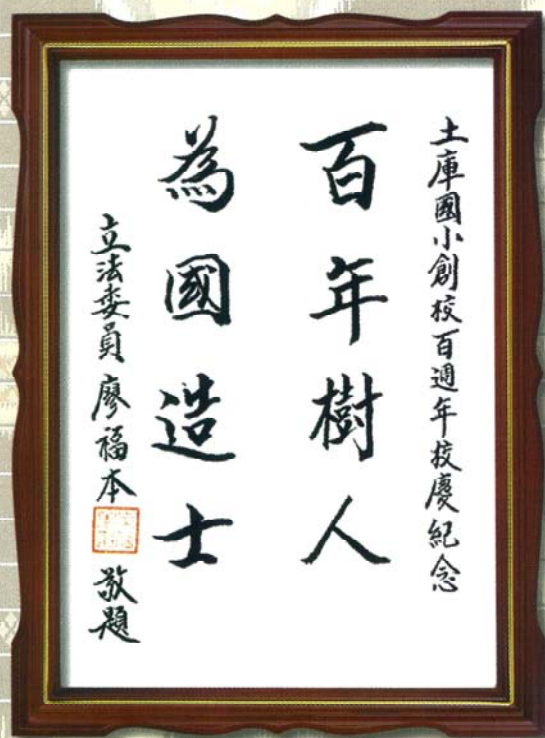 土庫國小創校百週年校慶紀念
百年樹人
為國造士
立法委員廖福本 敬題